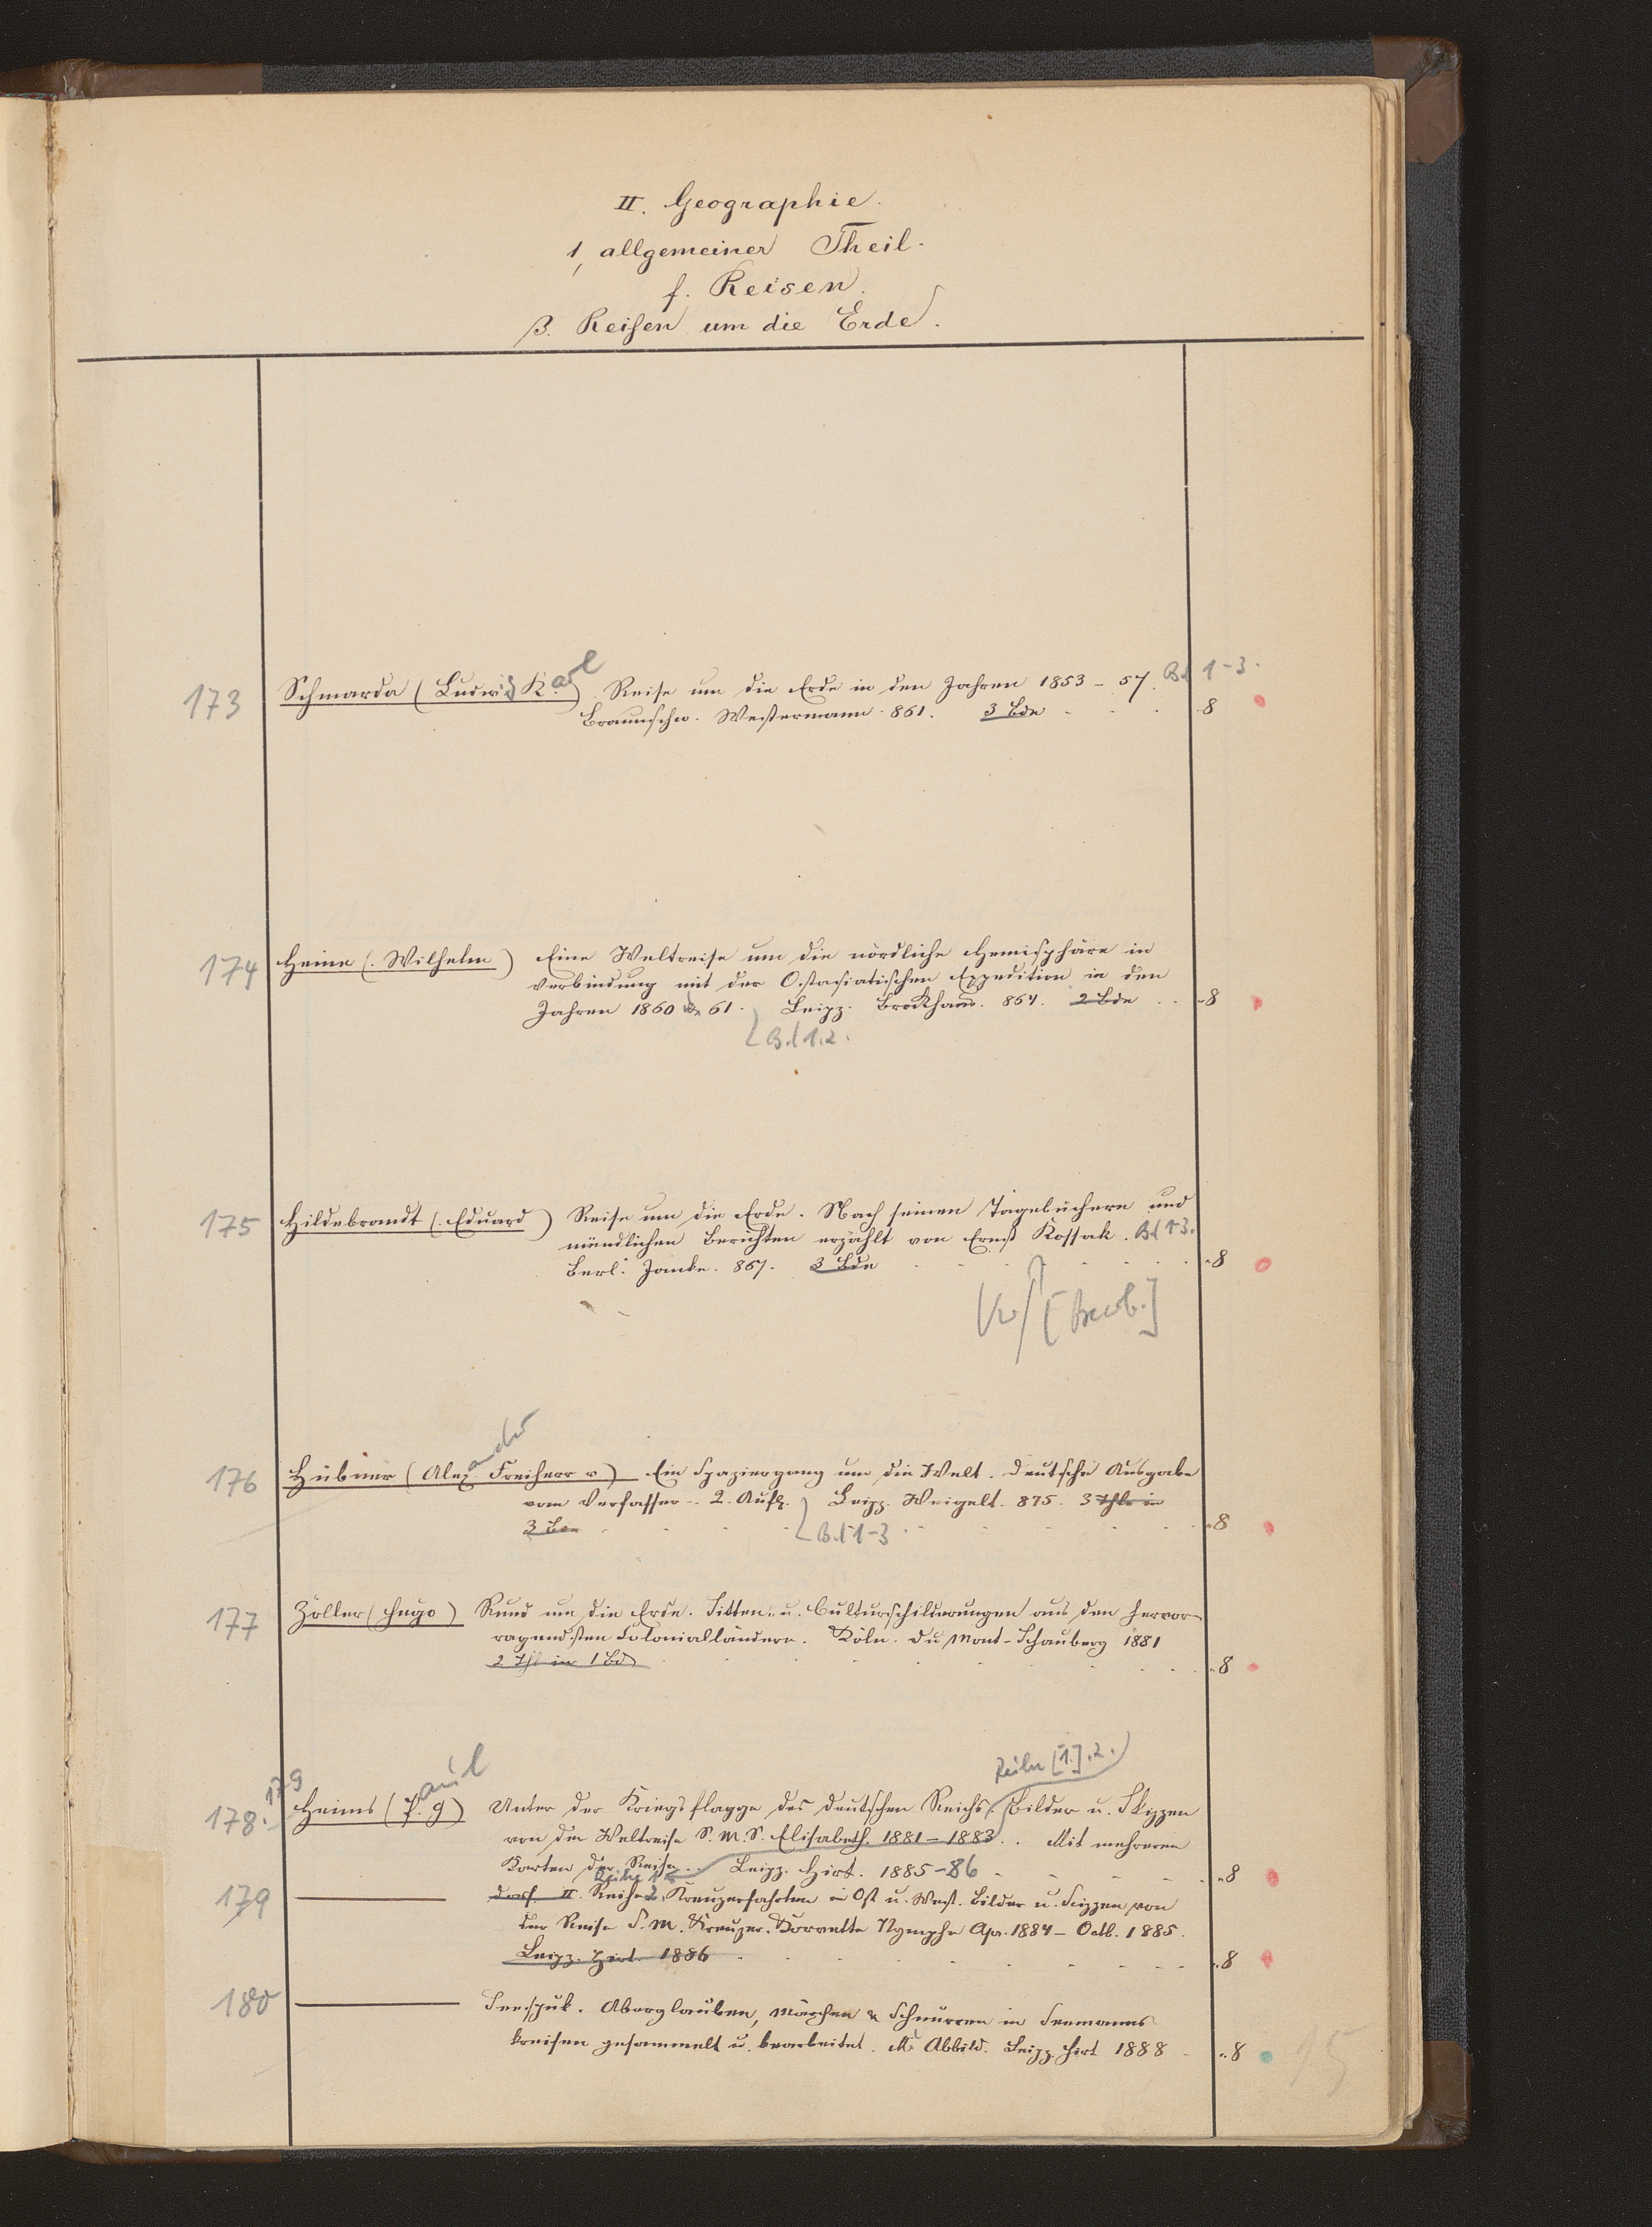 II. Geographie.
1, allgemeiner Theil.
f. Reisen.
β. Reisen um die Erde.
173 Schmarda (Ludwig Karl) Reise um die Erde in den Jahren 1853 - 57. Bd 1-3.
Braunschw. Westermann. 861. 3 Bde 8
174 Heine (Wilhelm) Eine Weltreise um die nördliche Hemisphäre in
Verbindung mit der Ostasiatischen Expedition in den
Jahren 1860 61. Leipz. Brockhaus. 864. 2 Bde 8
Bd 1.2.
175 Hildebrandt (Eduard) Reise um die Erde. Nach seinen Tagebüchern und
mündlichen Berichten erzählt von Ernst Kossak. Bd 1-3.
Berl. Janke. 867. 3 Bde 8
176 Hübner (Alexander Freiherr v) Ein Spaziergang um die Welt. Deutsche Ausgabe
vom Verfasser. 2. Aufl. Leipz. Weigelt. 875. 3 Thle in
3 Bde 8
Bd 1-3
177 Zöller (Hugo) Rund um die Erde. Sitten- u. Culturschilderungen aus den hervor-
ragendsten Colonialländern. Köln. Du Mont-Schauberg 1881
2 Thl in 1 Bd 8
Reihe [1.].2.
178. 179 Heims (Paul g) Unter der Kriegsflagge des deutschen Reichs. Bilder u. Skizzen
von der Weltreise S.M.S. Elisabeth. 1881-1883. Mit mehreren
Karten der Reise. Leipz. Hirt. 1885-86 8
Reihe 1
179 dass. II. Reihe 2. Kreuzerfahrten in Ost u. West. Bilder u. Skizzen von
der Reise S.M. Kreuzer-Korvette Nymphe Apr. 1884 - Octb. 1885.
Leipz. Hirt. 1886 8
180 Seespuk. Aberglauben, Märchen & Schnurren in Seemanns
kreisen gesammelt u. bearbeitet. M Abbild. Leipz. Hirt 1888 8
15